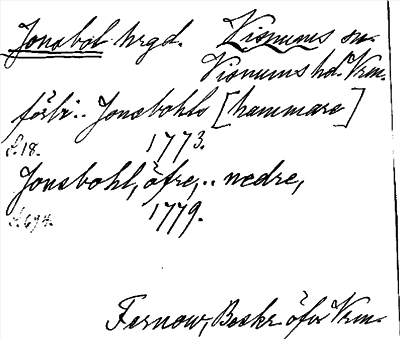 Jonsbol hrgd. Visnums sn.
Visnums hd. Vrm.
förbi .. Jonsbohls [hammare]
s. 18. 1773.
Jonsbohl, öfre, .. nedre,
s. 694. 1779.
Fernow, Beskr. öfver Vrm.